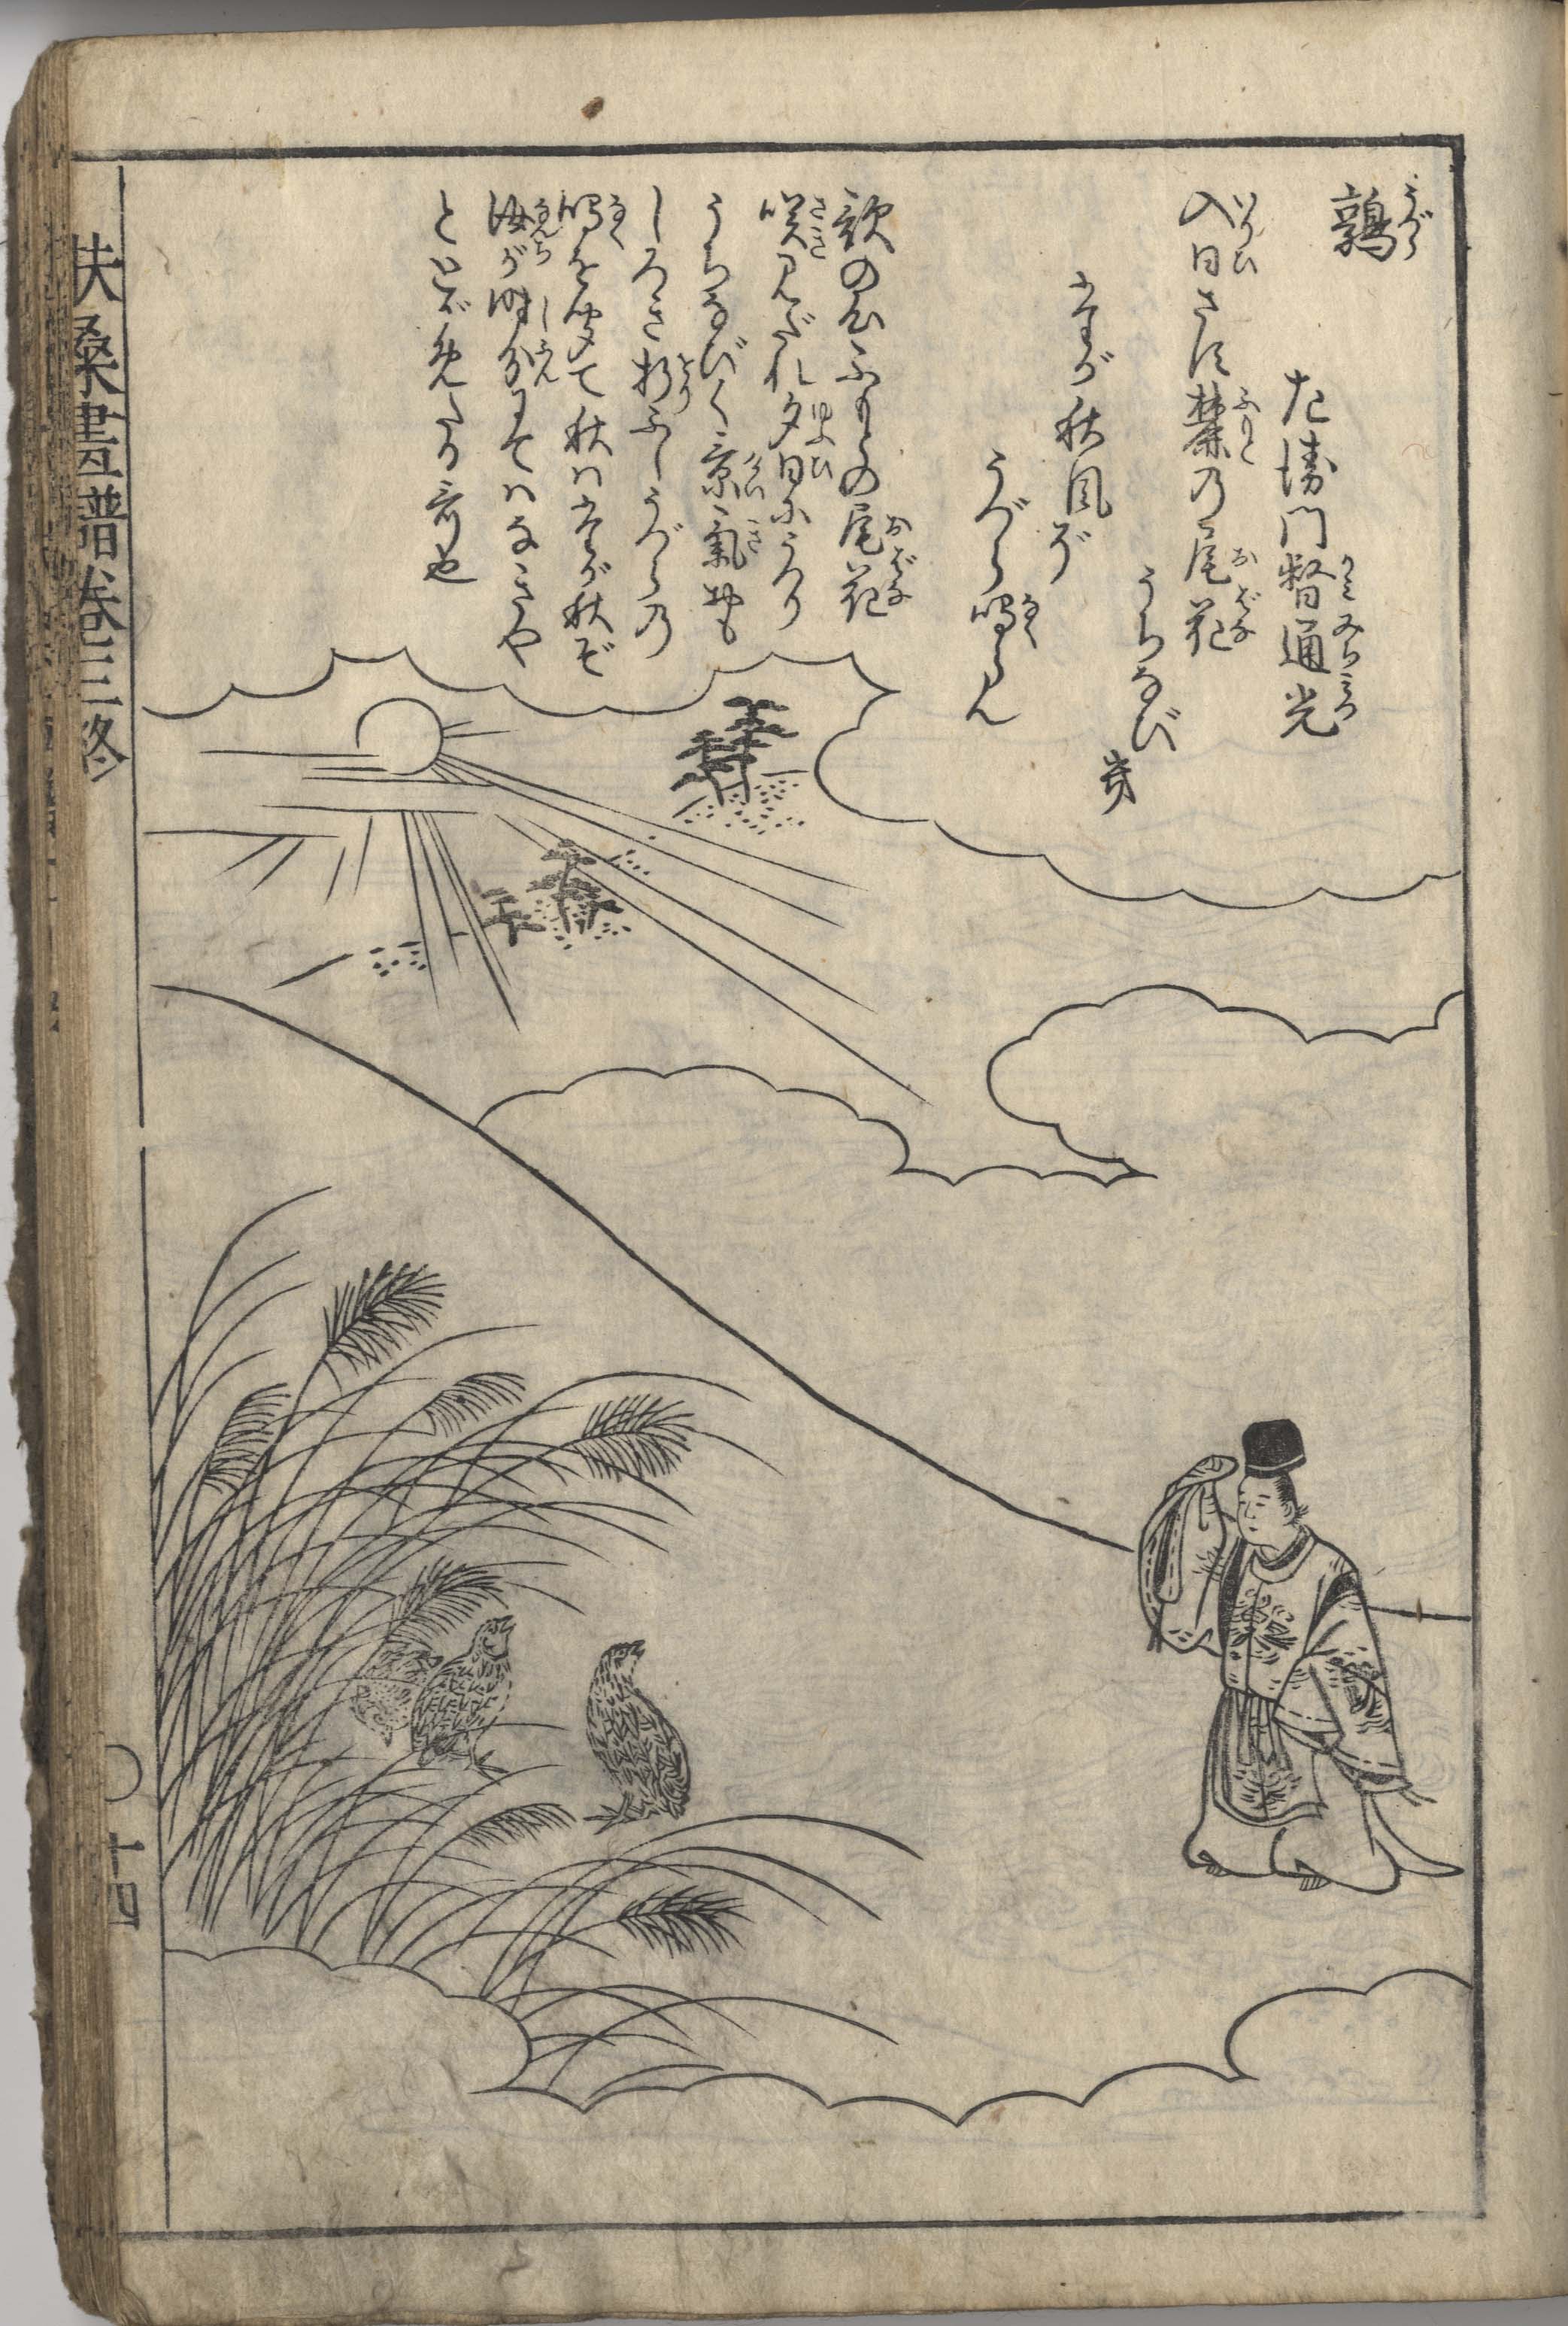 鶉
左衛門督通光
入日さす麓乃尾花
うちなびき
たが秋風ぞ
うづら鳴らん
歌の心ふもとの尾花
咲みだれ夕日にうつり
うちなびく景氣おも
しろき折ふしうづら乃
鳴を聞て秋はたが秋ぞ
汝が時分にてはなきや
ととがめたる意也
扶桑畫譜卷三終
十四